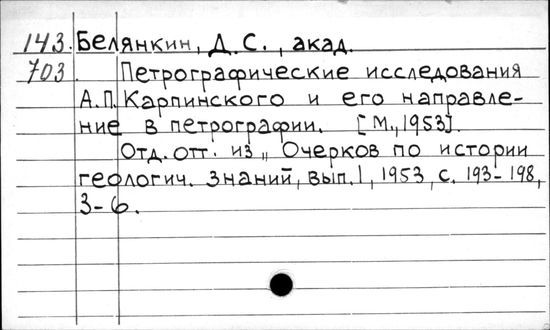 143. Белянкин, Д.С., акад.
703 Петрографические исследования
А.П. Карпинского и его направле-
ние в петрографии. [М., 1953].
Отд. отт. из „ Очерков по истории
геологич. знаний, вып. 1, 1953, с. 193-198,
3-6.